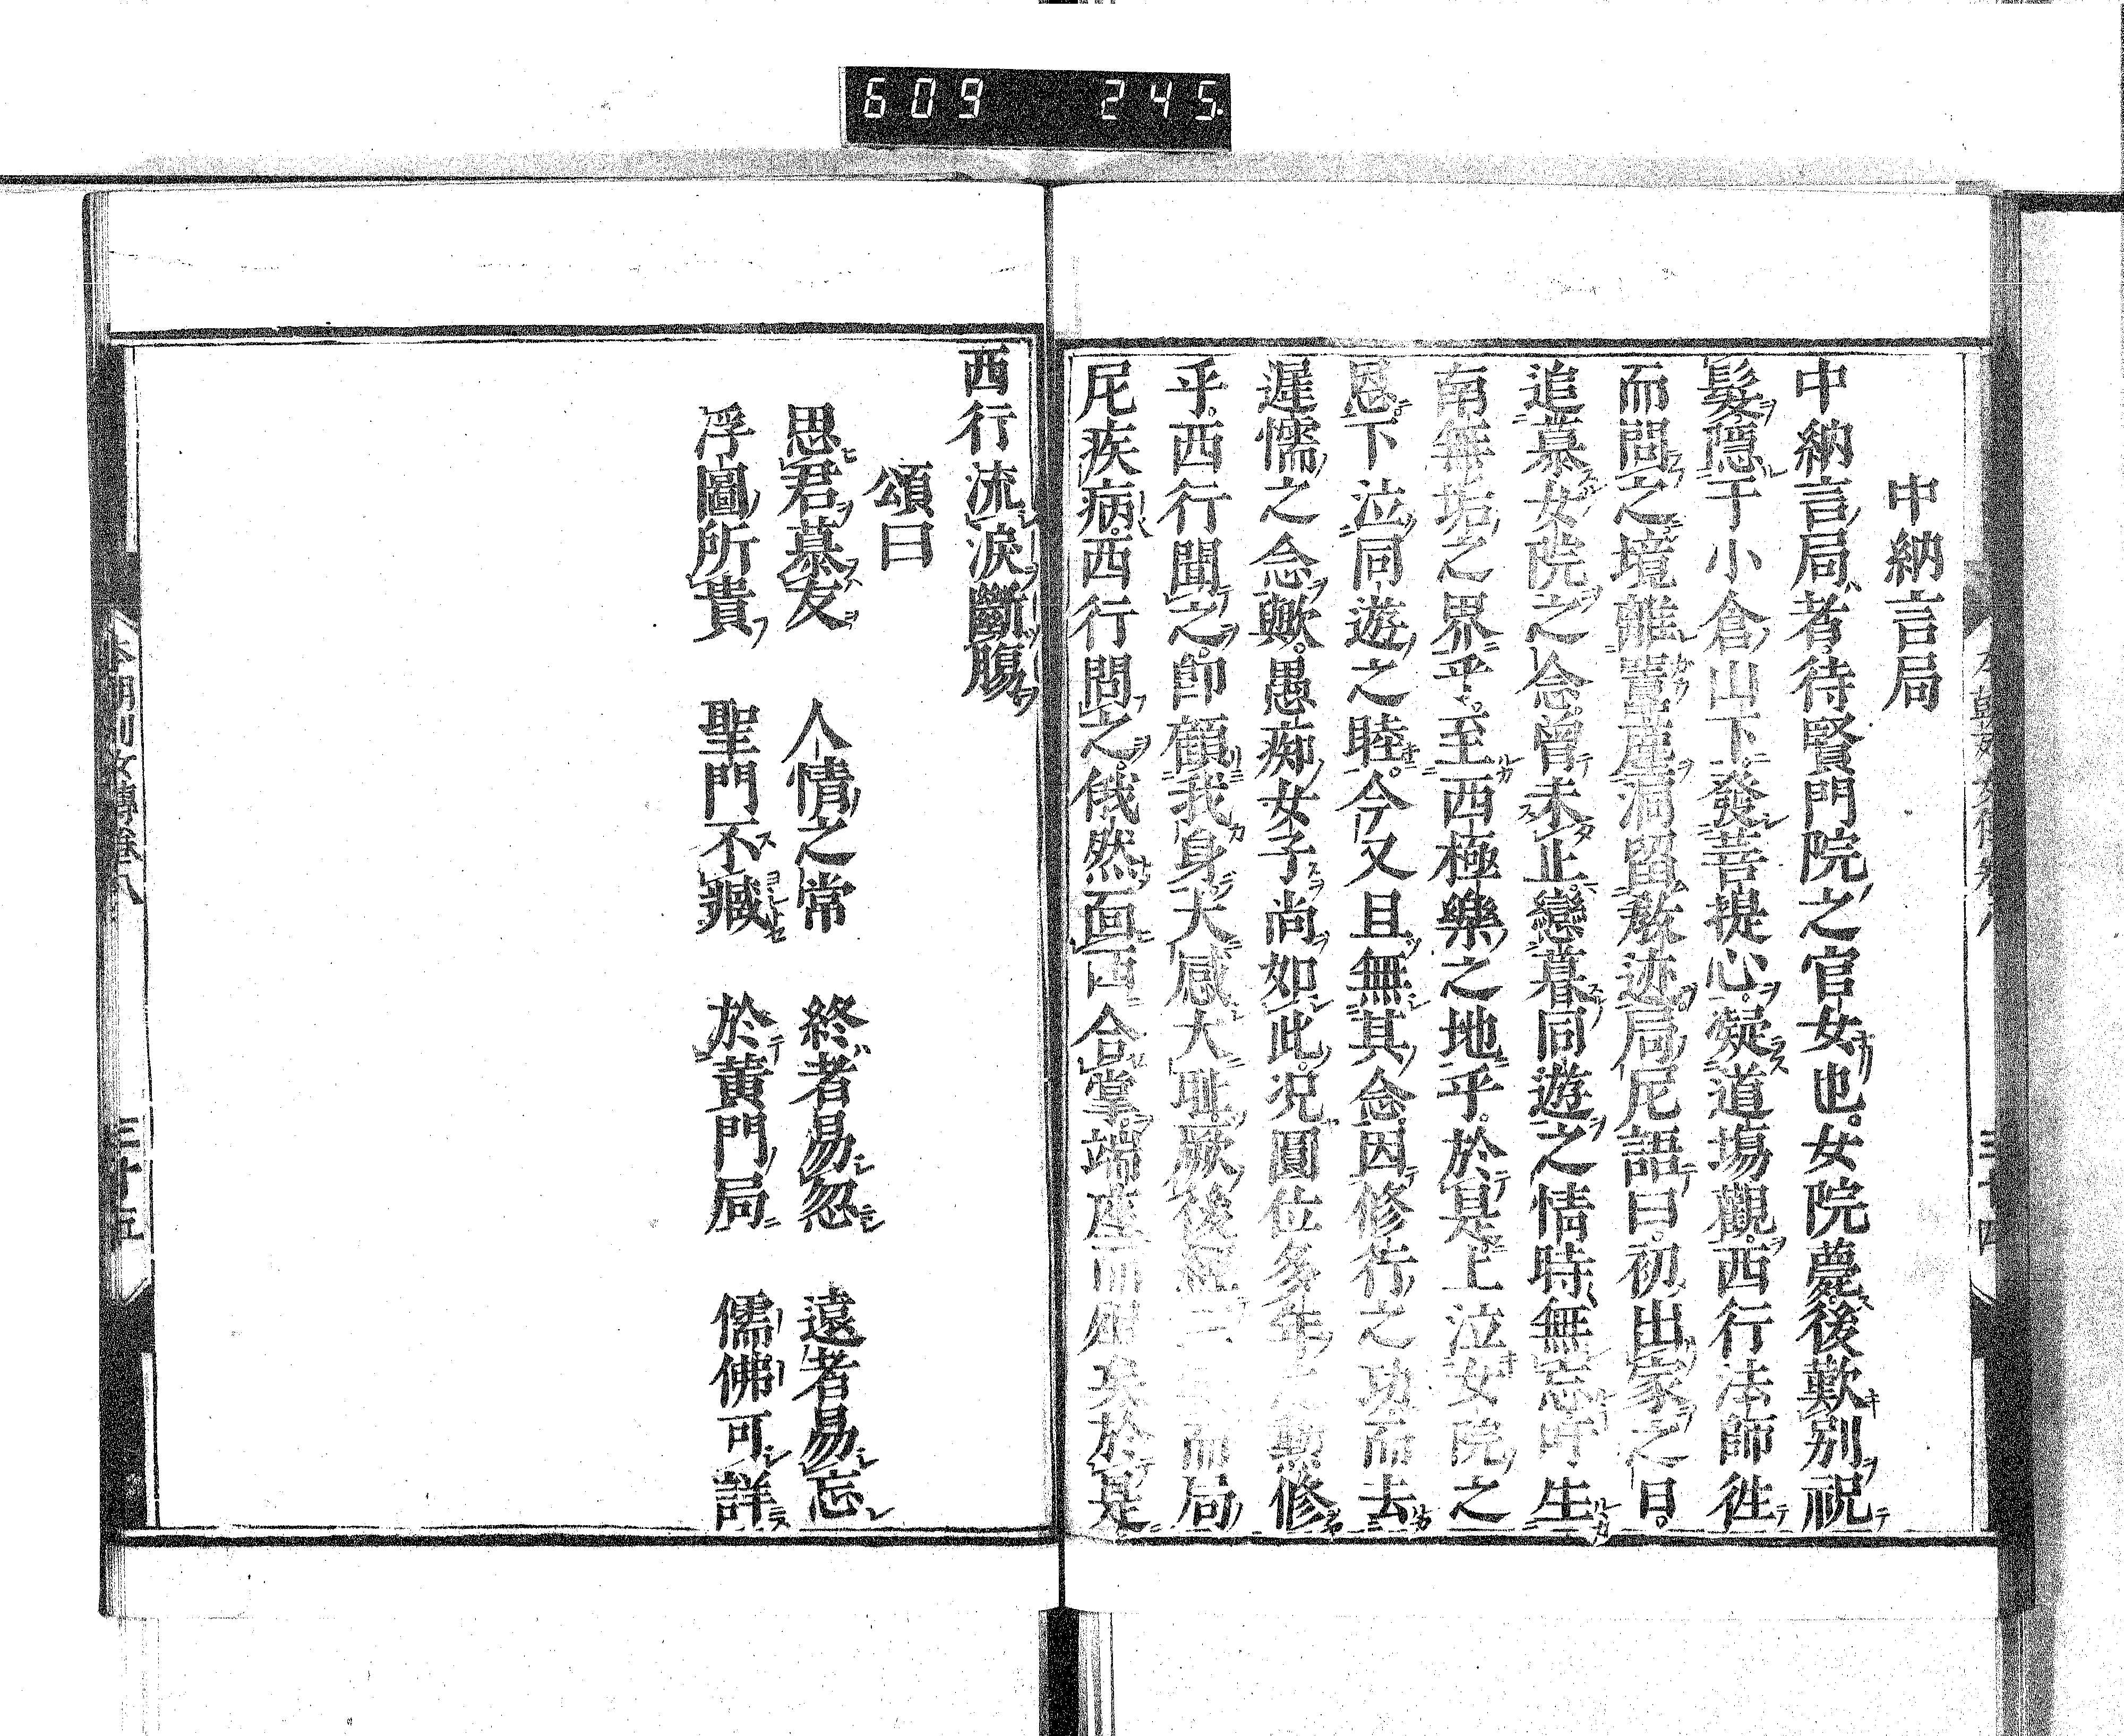 609 245.
中納言局
中納言局者。待賢門院之官女也。女院薨。後歎別祝
髮隱于小倉山下。發菩提心。凝道場觀。西行法師徃
而問之境離嵩洞留跡局尼語曰。初出家之日。
追慕女院之念。曾未止。戀慕同遊之情時無忘時生
南無垢之界乎。至西極樂之地乎。於是上泣女院之
恩。下泣同遊之睦。今又且無其念。因修行之功而去
遲懦之念歟。愚痴女子尚如此。况圓位多年之勲修
乎。西行聞之。即顧我身大感大耻。厥後經二而局
尼疾病。西行問之。俄然面西合掌。端座而終矣於是
西行流淚斷膓
頌曰
思君慕友 人情之常 終者易忽 遠者易忘
浮圖所貴 聖門不臧 於黄門局 儒佛可詳
本朝列女傳卷八 三十五